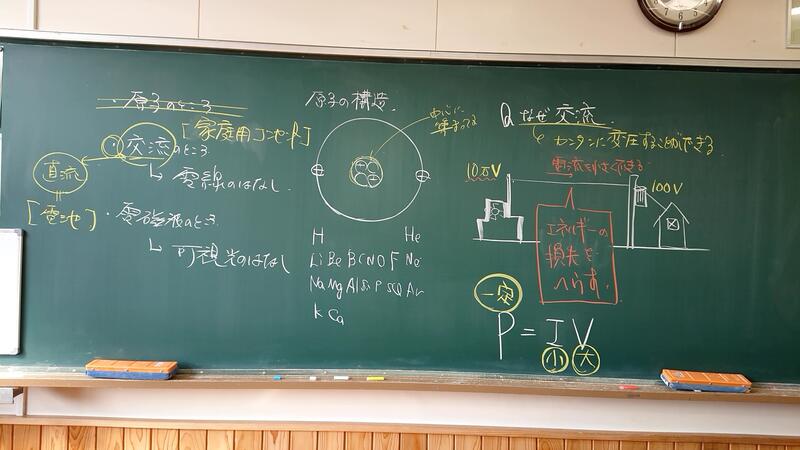 ・原子のところ
・交流のところ
[家庭用コンセント]
直流
=
[電池]
↳ 電線のはなし
・電磁波のところ
↳ 可視光のはなし
原子の構造.
中心に
集まってる
H He
Li Be B C N O F Ne
Na Mg Al Si P S Cl Ar
K Ca
Q なぜ 交流
↳ カンタンに変圧することができる
電流を小さくできる
10万V
100V
エネルギーの
損失を
へらす.
一定
P = I V
小 大